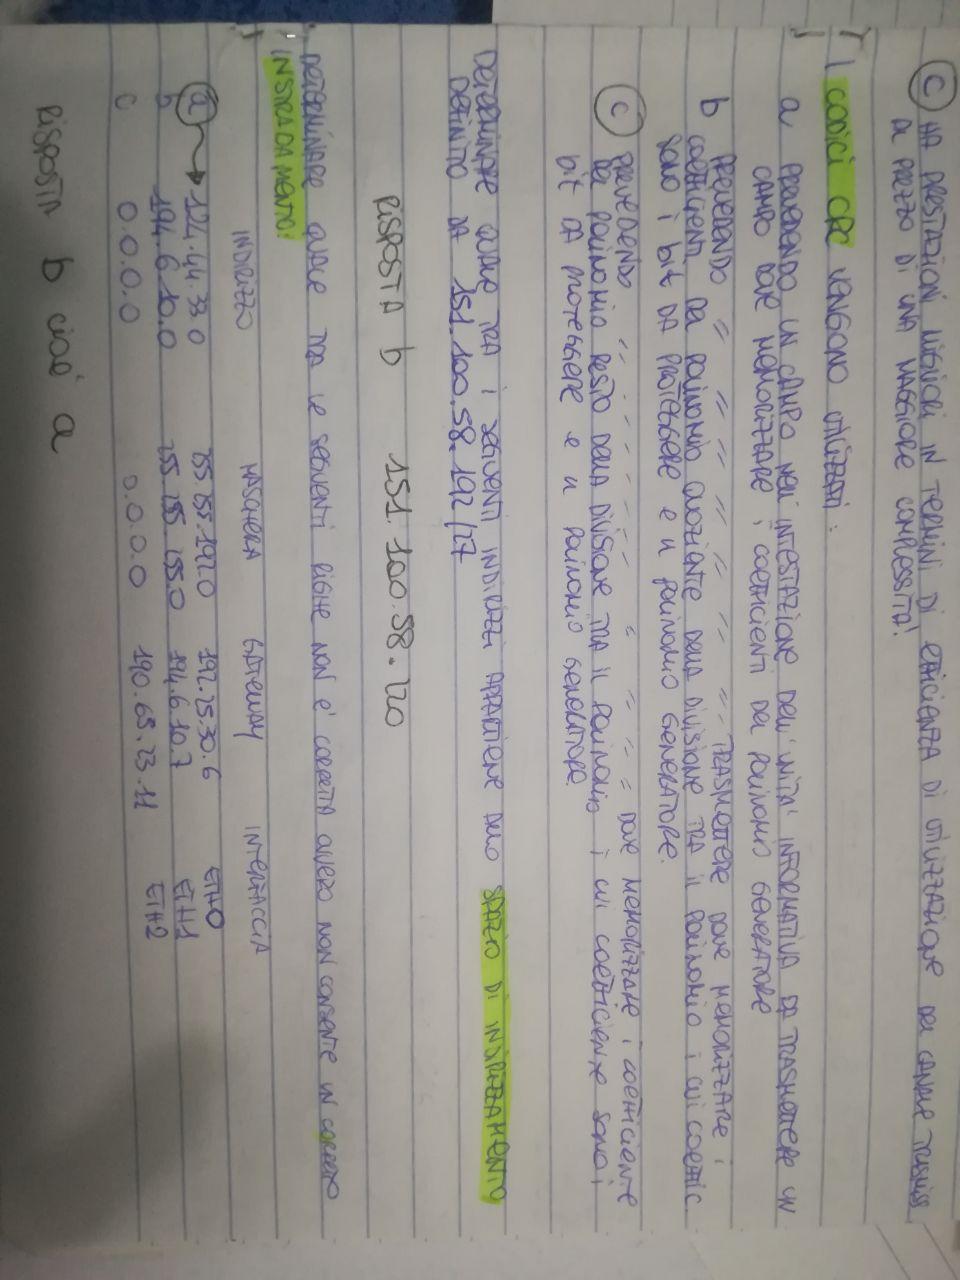 C HA PRESTAZIONI MIGLIORI IN TERMINI DI EFFICIENZA DI UTILIZZAZIONE DEL CANALE TRASMISS
AL PREZZO DI UNA MAGGIORE COMPLESSITA'!
I CODICI CRC VENGONO UTILIZZATI:
a PREVEDENDO UN CAMPO NELL'INTESTAZIONE DELL'UNITA' INFORMATIVA DA TRASMETTERE UN
CAMPO DOVE MEMORIZZARE i COEFFICIENTI DEL POLINOMIO GENERATORE
b PREVEDENDO " " " " " " " TRASMETTERE DOVE MEMORIZZARE i
COEFFICIENTI DEL POLINOMIO QUOZIENTE DELLA DIVISIONE TRA IL POLINOMIO i CUI COEFFIC.
SONO i bit DA PROTEGGERE e il POLINOMIO GENERATORE.
C PREVEDENDO " " " " " " " " " " " DOVE MEMORIZZARE i COEFFICIENTE
DEL POLINOMIO RESTO DELLA DIVISIONE TRA IL POLINOMIO i CUI COEFFICIENTE SONO i
bit DA PROTEGGERE e il POLINOMIO GENERATORE.
DETERMINARE QUALE TRA i SEGUENTI INDIRIZZI APPARTIENE ALLO SPAZIO DI INDIRIZZAMENTO
DEFINITO DA 151.100.58.192/27
RISPOSTA b 151.100.58.220
DETERMINARE QUALE TRA LE SEGUENTI RIGHE NON E' CORRETTA OVVERO NON CONSENTE UN CORRETTO
INSTRADAMENTO:
INDIRIZZO MASCHERA GATEWAY INTERFACCIA
a 124.44.33.0 255.255.192.0 192.25.30.6 ETH0
b 194.6.10.0 255.255.255.0 194.6.10.7 ETH1
c 0.0.0.0 0.0.0.0 190.65.23.11 ETH2
RISPOSTA b cioè a